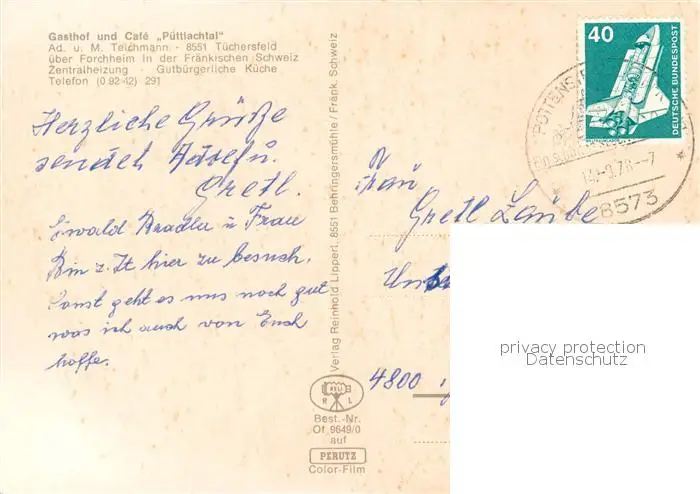 Gasthof und Café „Püttlachtal"
Ad. u. M. Teichmann - 8551 Tüchersfeld
über Forchheim in der Fränkischen Schweiz
Zentralheizung - Gutbürgerliche Küche
Telefon (0.92 42) 291
Herzliche Grüße
sendet Adolf u.
Gretl.
Ewald u Frau
Bin z. Zt hier zu besuch.
Sonst geht es uns noch gut
was ich auch von Euch
hoffe.
Verlag Reinhold Lippert, 8551 Behringersmühle / Fränk. Schweiz
RELI
R L
Best.-Nr.
Of 9649/0
auf
PERUTZ
Color-Film
40
DEUTSCHE BUNDESPOST
POTTENS
-9.78--7
8573
Frau
Gretl Laube
4800
privacy protection
Datenschutz